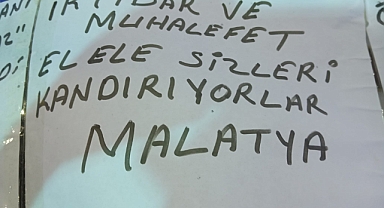 İKTİDAR VE
MUHALEFET
ELELE SİZLERİ
KANDIRIYORLAR
MALATYA